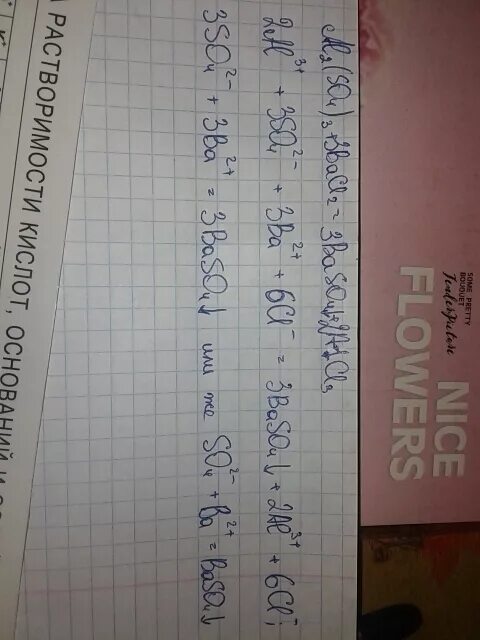 Al₂(SO₄)₃ + 3BaCl₂ = 3BaSO₄↓ + 2AlCl₃
2Al³⁺ + 3SO₄²⁻ + 3Ba²⁺ + 6Cl⁻ = 3BaSO₄↓ + 2Al³⁺ + 6Cl⁻
3SO₄²⁻ + 3Ba²⁺ = 3BaSO₄↓ или же SO₄²⁻ + Ba²⁺ = BaSO₄↓
РАСТВОРИМОСТИ КИСЛОТ, ОСНОВАНИЙ И
NICE
FLOWERS
SOME PRETTY
BOUQUET